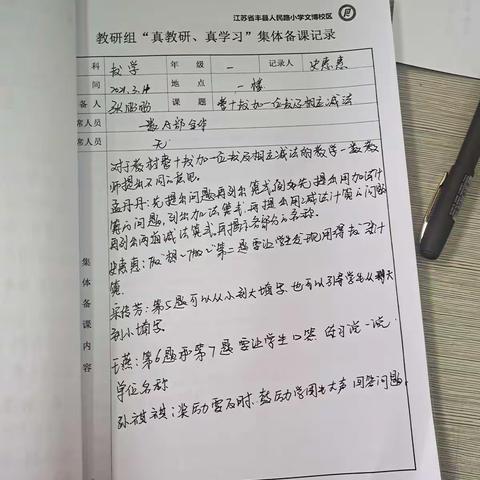 江苏省丰县人民路小学文博校区
教研组“真教研、真学习”集体备课记录
科 数学 年级 一 记录人 史惠惠
间 2021.3.14 地点 一楼
备人 课题 整十数加一位数及相应减法
席人员 一数全体
席人员 无
对于教材整十数加一位数及相应减法的教学一数教
师提出不同的意见。
孟丹丹:先提出问题再列出算式,例如先提出用加法计
算的问题,列出加法算式,再提出用减法计算的问题
再列出两道减法算式,再揭示各部分的名称。
史惠惠:“想想做做”第二题要让学生发现用得数计
算。
宋传芳:第5题可以从小到大填写,也可以引导学生从大
到小填写
王燕:第6题和第7题要让学生口答,练习说一说
单位名称
孙祺祺:奖励要及时,鼓励学困生大声回答问题。
集体备课内容